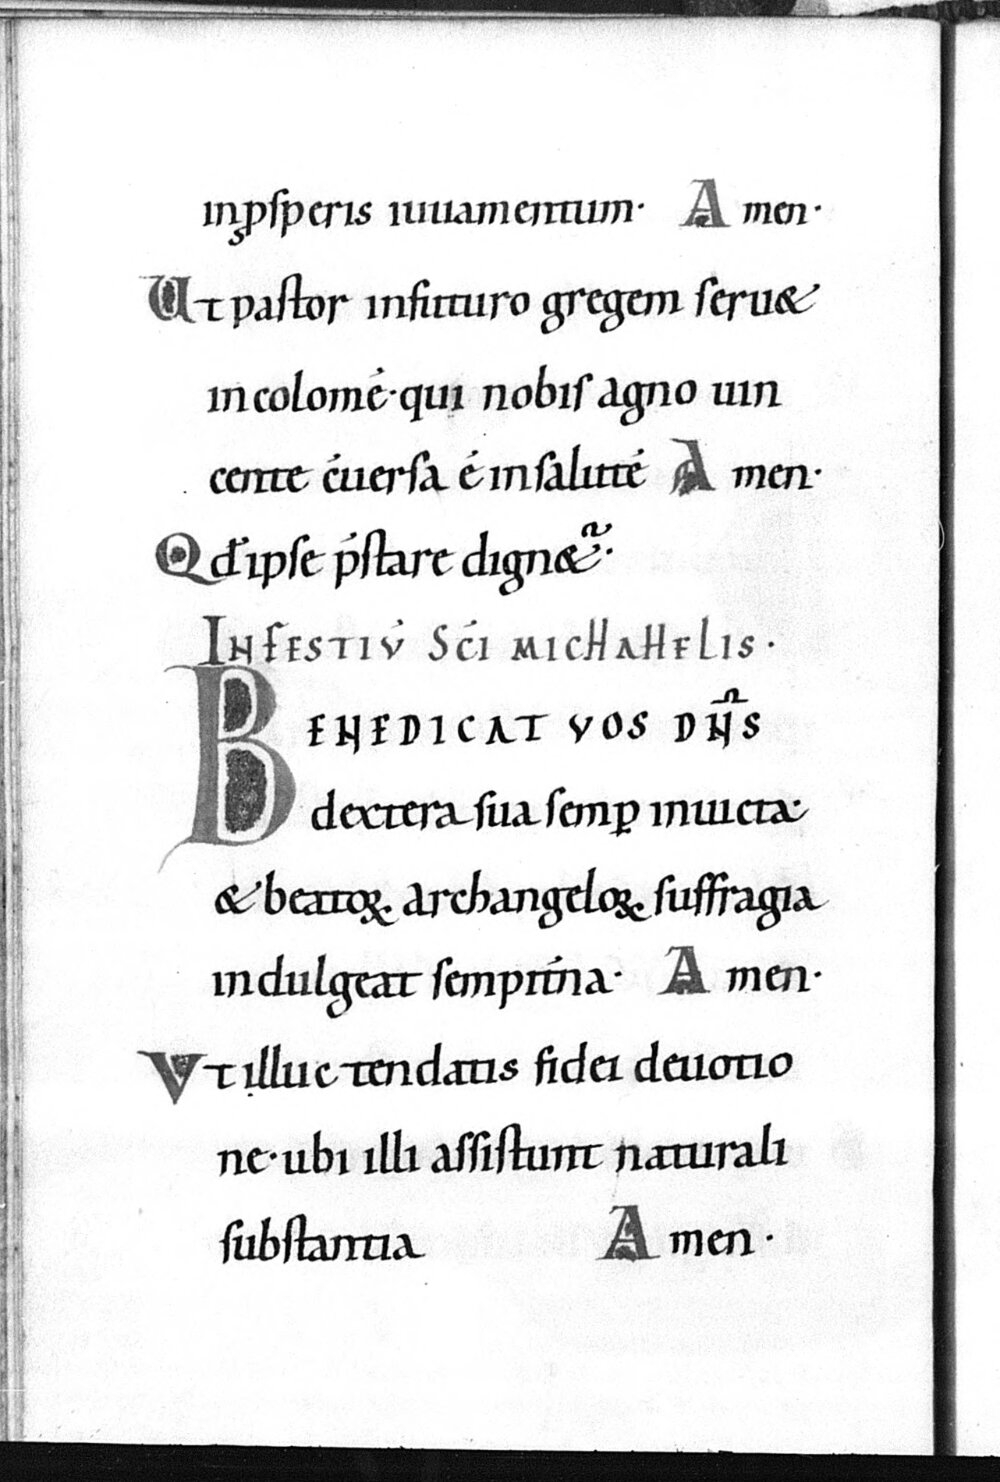 inꝓſperis iuuamentum· Amen·
Ut paſtor infuturo gregem ſeru&
incolomé·qui nobiſ agno uin
cente éuerſa é inſaluté Amen·
Qđ ipſe p̓ſtare dign&ᷓ·
INFESTIV́ SĆI MICHAHELIS·
BENEDICAT VOS DN̄S
dextera ſua ſemꝑ inuicta·
& beatoꝝ archangeloꝝ ſuffragia
indulgeat ſempitńa· Amen·
Vt illuc tendatis fidei deuotio
ne·ubi illi aſſiſtunt naturali
ſubſtantia Amen·